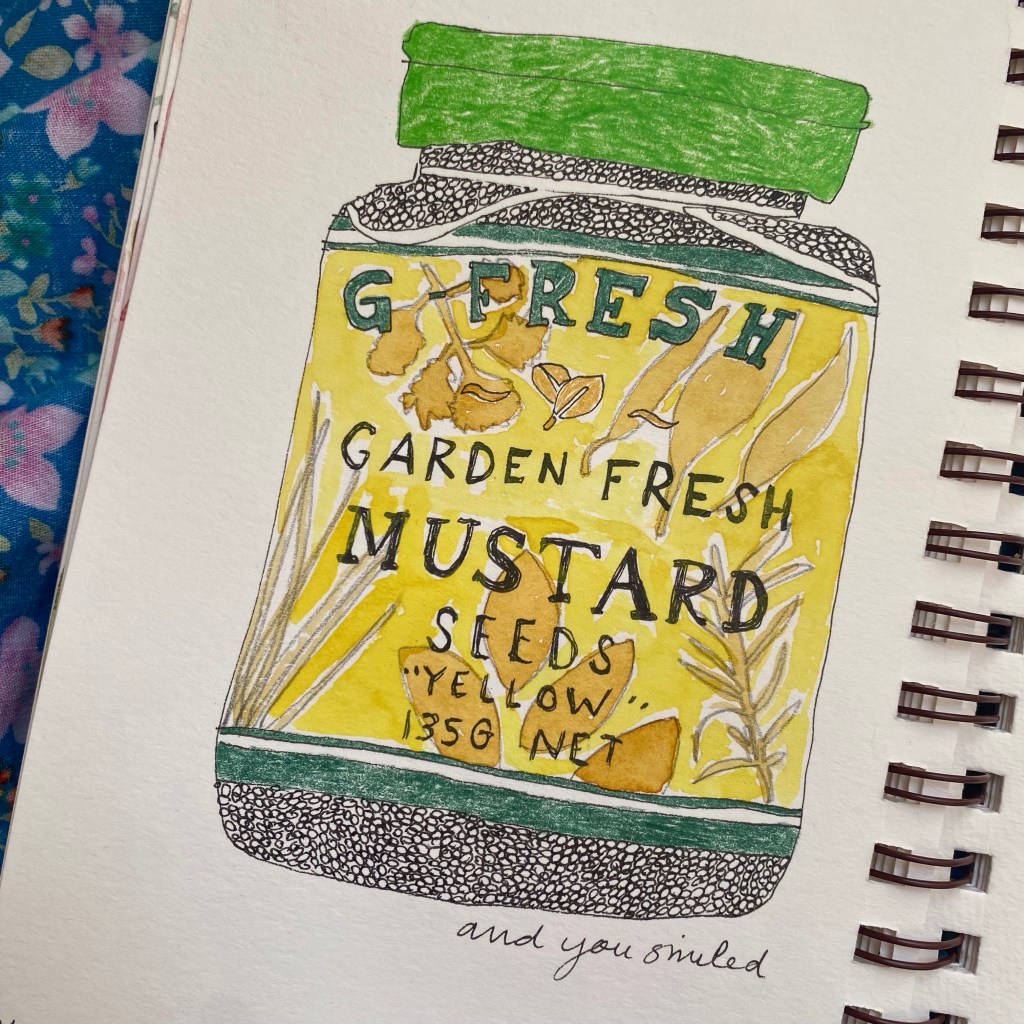 G-FRESH
GARDEN FRESH
MUSTARD
SEEDS
"YELLOW"
135G NET
and you smiled